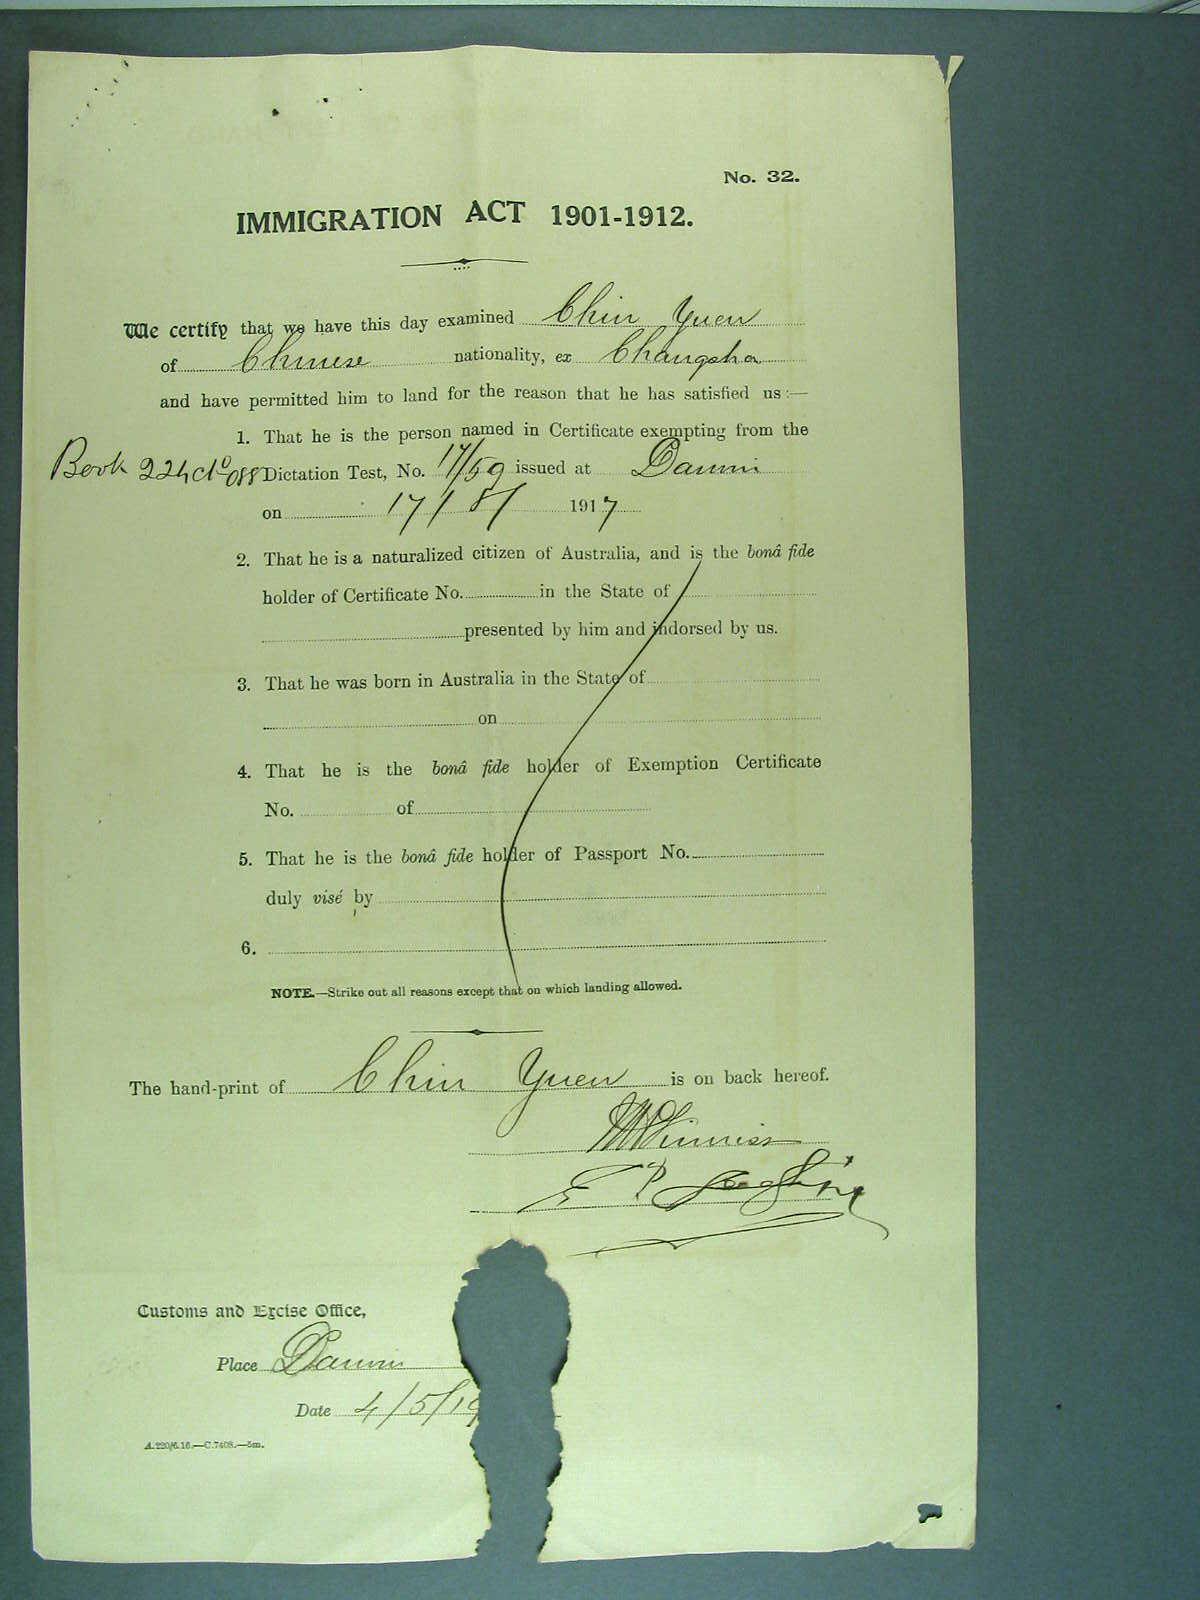 No. 32.
IMMIGRATION ACT 1901-1912.
We certify that we have this day examined Chin Yuen
of Chinese nationality, ex Changsha
and have permitted him to land for the reason that he has satisfied us :—
1. That he is the person named in Certificate exempting from the
Book 224 Dictation Test, No. 17/59 issued at Darwin
on 17/8/ 1917
2. That he is a naturalized citizen of Australia, and is the bonâ fide
holder of Certificate No. in the State of
presented by him and indorsed by us.
3. That he was born in Australia in the State of
on
4. That he is the bonâ fide holder of Exemption Certificate
No. of
5. That he is the bonâ fide holder of Passport No.
duly visé by
6.
NOTE.—Strike out all reasons except that on which landing allowed.
The hand-print of Chin Yuen is on back hereof.
Customs and Excise Office,
Place Darwin
Date 4/5/19
A.220/6.16.—C.7408.—5m.